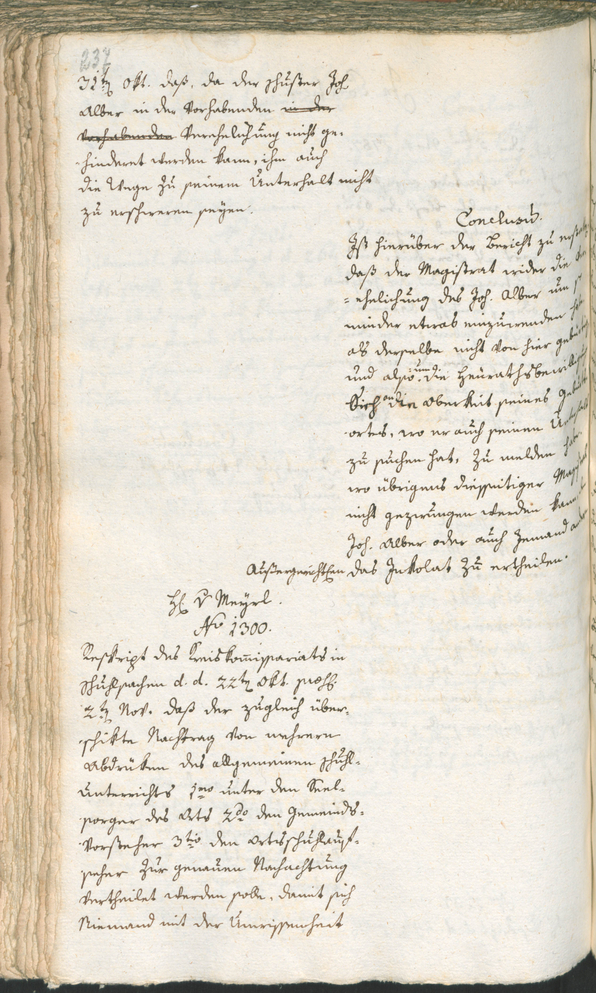 237
31ten Okt. daß, da der Schuster Joh.
Alber in der vorhabenden in der
vorhabenden Verehelichung nicht ge-
hindert werden kann, ihm auch
die Wege zu seinem Unterhalt nicht
zu erschweren seyen.
Conclusum.
Ist hierüber der Bericht zu
daß der Magistrat wider die
ehelichung des Joh. Alber um so
minder etwas einzuwenden
als derselbe nicht von hier
und also um die
sich an die Oberkeit seines
ortes, wo er auch seinen
zu suchen hat, zu melden
wo übrigens diesseitiger
nicht gezwungen werden kann,
Joh. Alber oder auch Jemand
das Inkolat zu ertheilen.
H. v Meyrl.
No 1300.
Reskript des Kreiskommissariats in
Schulsachen d. d. 22ten Okt.
2ten Nov. daß der zugleich über-
schikte Nachtrag von mehrern
Abdrüken des allgemeinen Schul-
unterrichts 1mo unter den Seel-
sorger des Orts 2do den Gemeinds-
Vorsteher 3tio den Ortsschulauf-
seher zur genauen Nachachtung
vertheilet werden solle, damit sich
Niemand mit der Unwissenheit